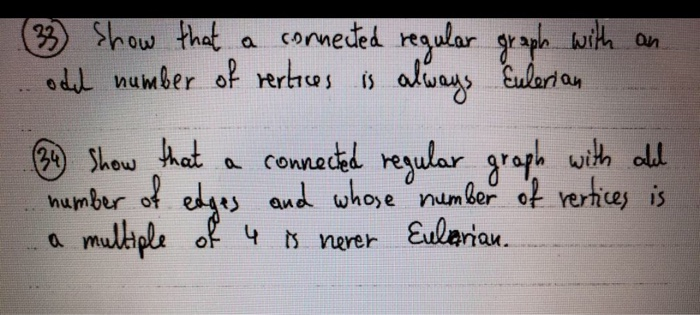 33 Show that a connected regular graph with an
odd number of vertices is always Eulerian
34 Show that a connected regular graph with odd
number of edges and whose number of vertices is
a multiple of 4 is never Eulerian.